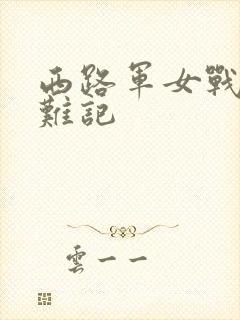 西路軍女戰
難記
雲一一